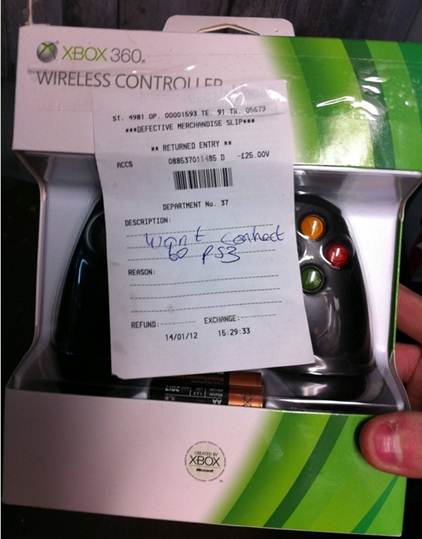 XBOX 360.
WIRELESS CONTROLLER
ST. 4981 OP. 00001593 TE. 91 TR. 05679
***DEFECTIVE MERCHANDISE SLIP***
** RETURNED ENTRY **
ACCS 088537011485 D -£25.00V
DEPARTMENT No. 37
DESCRIPTION:
Won't connect
to PS3
REASON:
REFUND: EXCHANGE:
14/01/12 15:29:33
AA
CREATED BY
XBOX
Microsoft